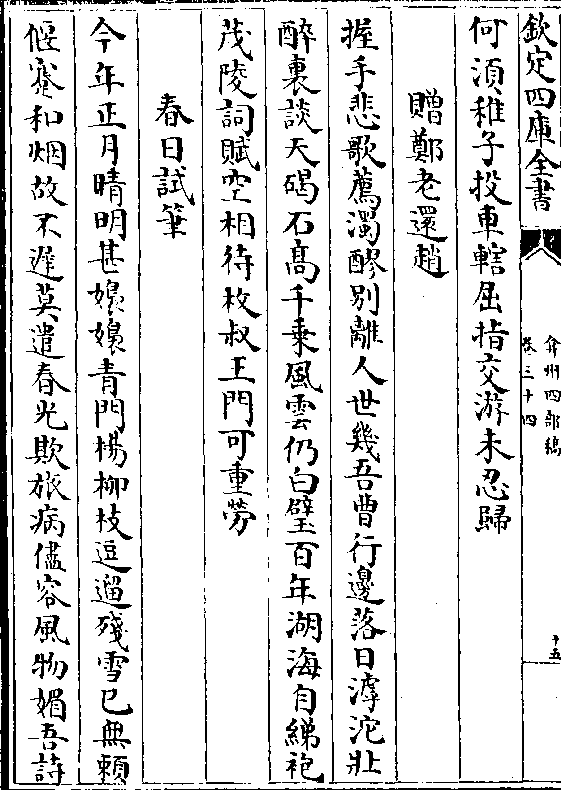 欽定四庫全書
弇州四部稿
卷三十四
十五
何須稚子投車轄屈指交游未忍歸
贈鄭老還趙
握手悲歌薦濁醪別離人世幾吾曹行邊落日滹沱壯
醉裏談天碣石髙千乗風雲仍白璧百年湖海自綈袍
茂陵詞賦空相待枚叔王門可重勞
春日試筆
今年正月晴明甚嬝嬝青門楊柳枝逗遛殘雪已無賴
偃蹇和烟故不遲莫遣春光欺旅病儘容風物媚吾詩